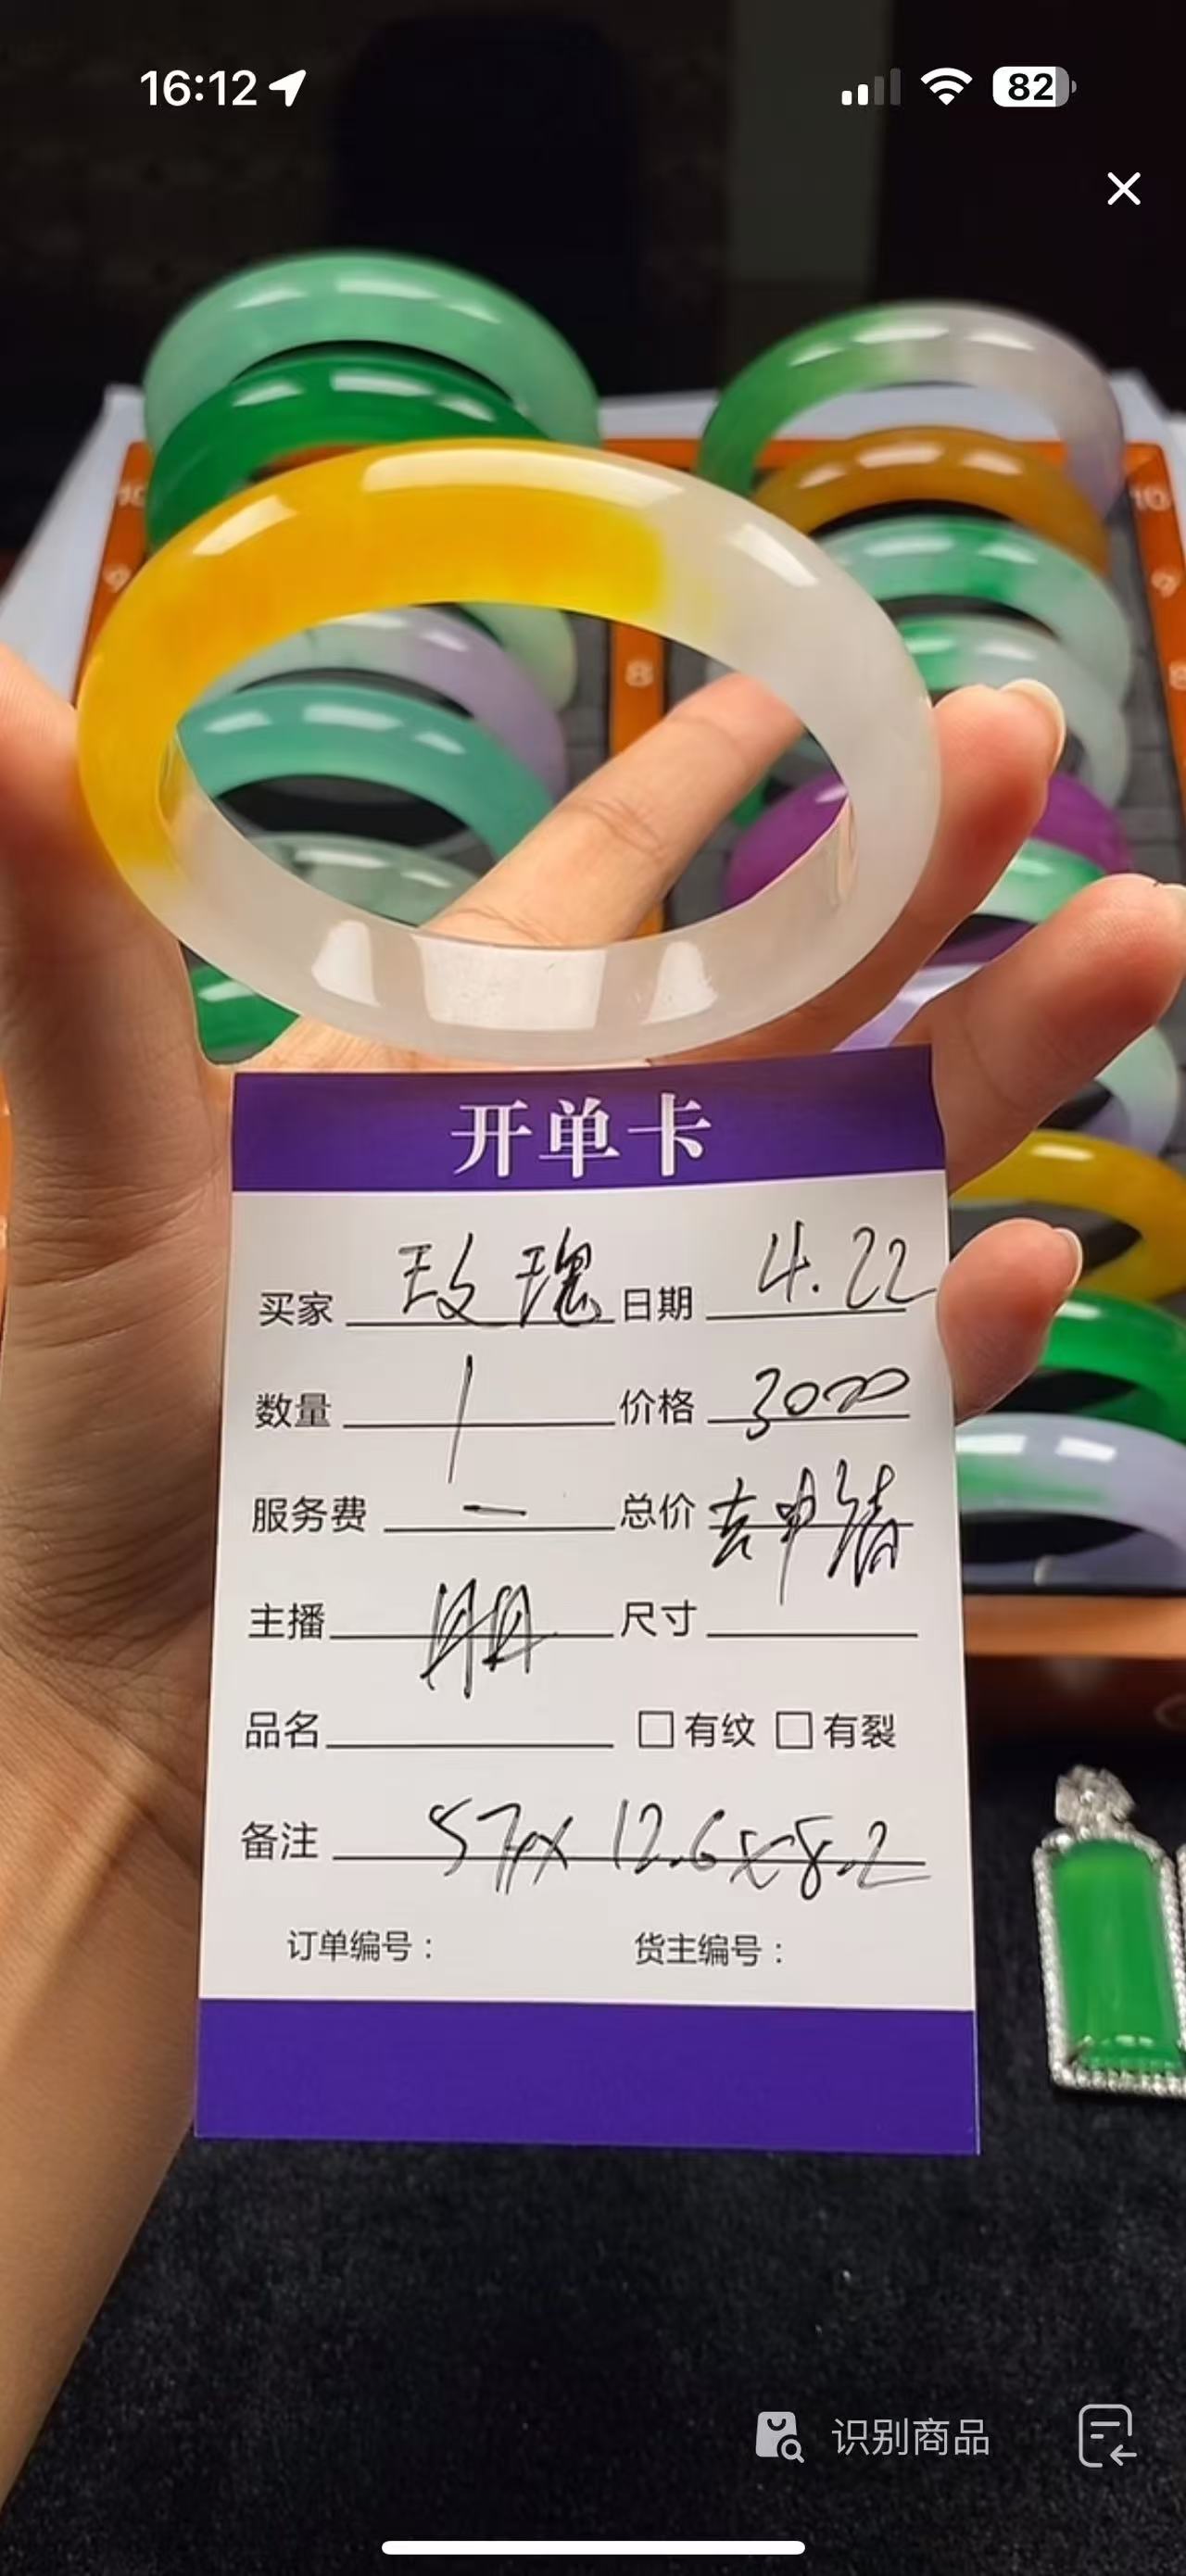 16:12
82
10
10
9
9
8
8
开单卡
买家 玫瑰 日期 4.22
数量 1 价格 3000
服务费 — 总价 去申请
主播 尺寸
品名 □有纹 □有裂
备注 57 x 12.6x8.2
订单编号： 货主编号：
识别商品